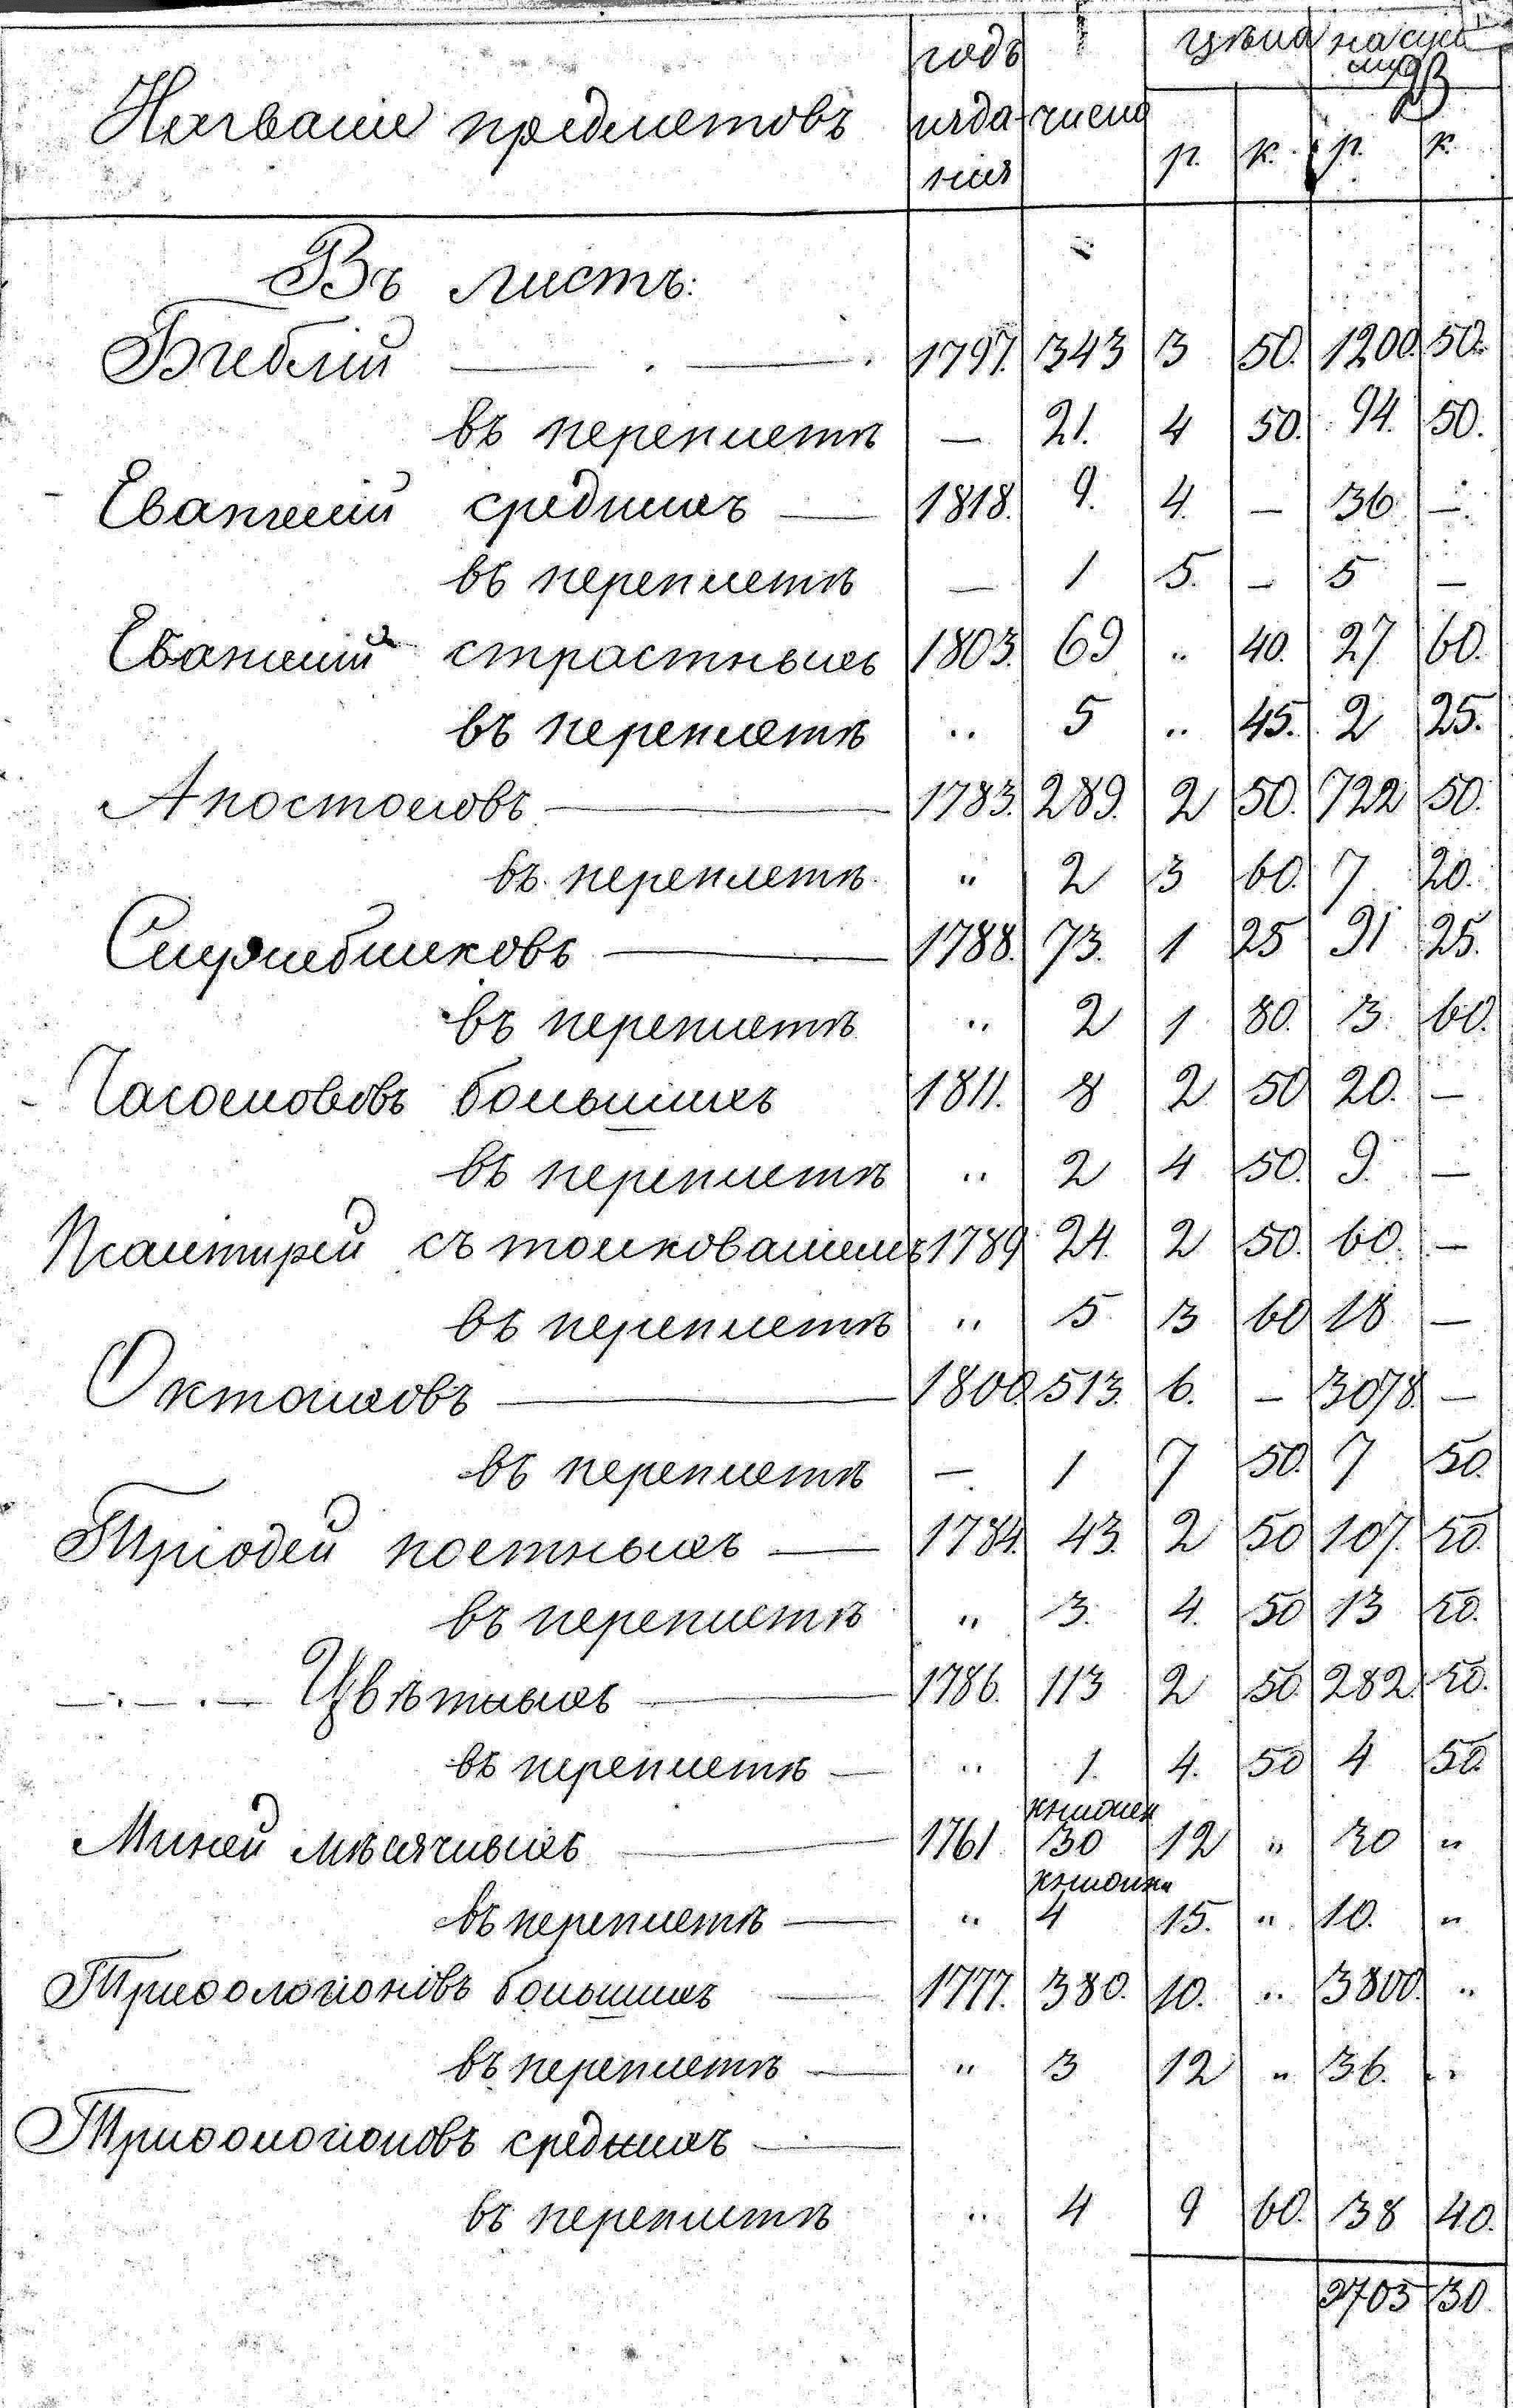 Названіе предметовъ годъ изданія число цѣна на сумму
р. к. р. к.
Въ листъ:
Библій — . — . 1797. 343 3 50. 1200. 50.
въ переплетѣ — 21. 4 50. 94. 50.
Евангелій среднихъ — 1818. 9. 4. — 36 —.
въ переплетѣ — 1 5. — 5 —
Евангелій страстныхъ 1803. 69 .. 40. 27 60.
въ переплетѣ .. 5 .. 45. 2 25.
Апостоловъ — 1783. 289. 2 50. 722 50.
въ переплетѣ. " 2 3 60. 7 20.
Служебниковъ — 1788. 73. 1 25 91 25.
въ переплетѣ .. 2 1 80. 3. 60.
Часослововъ большихъ 1811. 8 2 50 20. —
въ переплетѣ .. 2 4 50. 9. —
Псалтирей съ толкованіемъ 1789 24. 2 50. 60. —
въ переплетѣ .. 5 3 60 18 —
Октоиховъ — 1800. 513. 6. — 3078. —
въ переплетѣ —. 1 7 50. 7 50.
Тріодей постныхъ — 1784. 43. 2 50 107. 50.
въ переплетѣ " 3. 4. 50 13 50.
—.—.— Цвѣтныхъ — 1786. 113 2 50. 282. 50.
въ переплетѣ — .. 1. 4. 50 4 50.
Миней мѣсячныхъ — 1761 книжек 30 12 " 30 "
въ переплетѣ — .. книжки 4 15. " 10. "
Трифологіоновъ большихъ — 1777. 380. 10. .. 3800. ..
въ переплетѣ — " 3 12 " 36. ..
Трифологіоновъ среднихъ —
въ переплетѣ .. 4 9 60. 38 40.
9705 30.